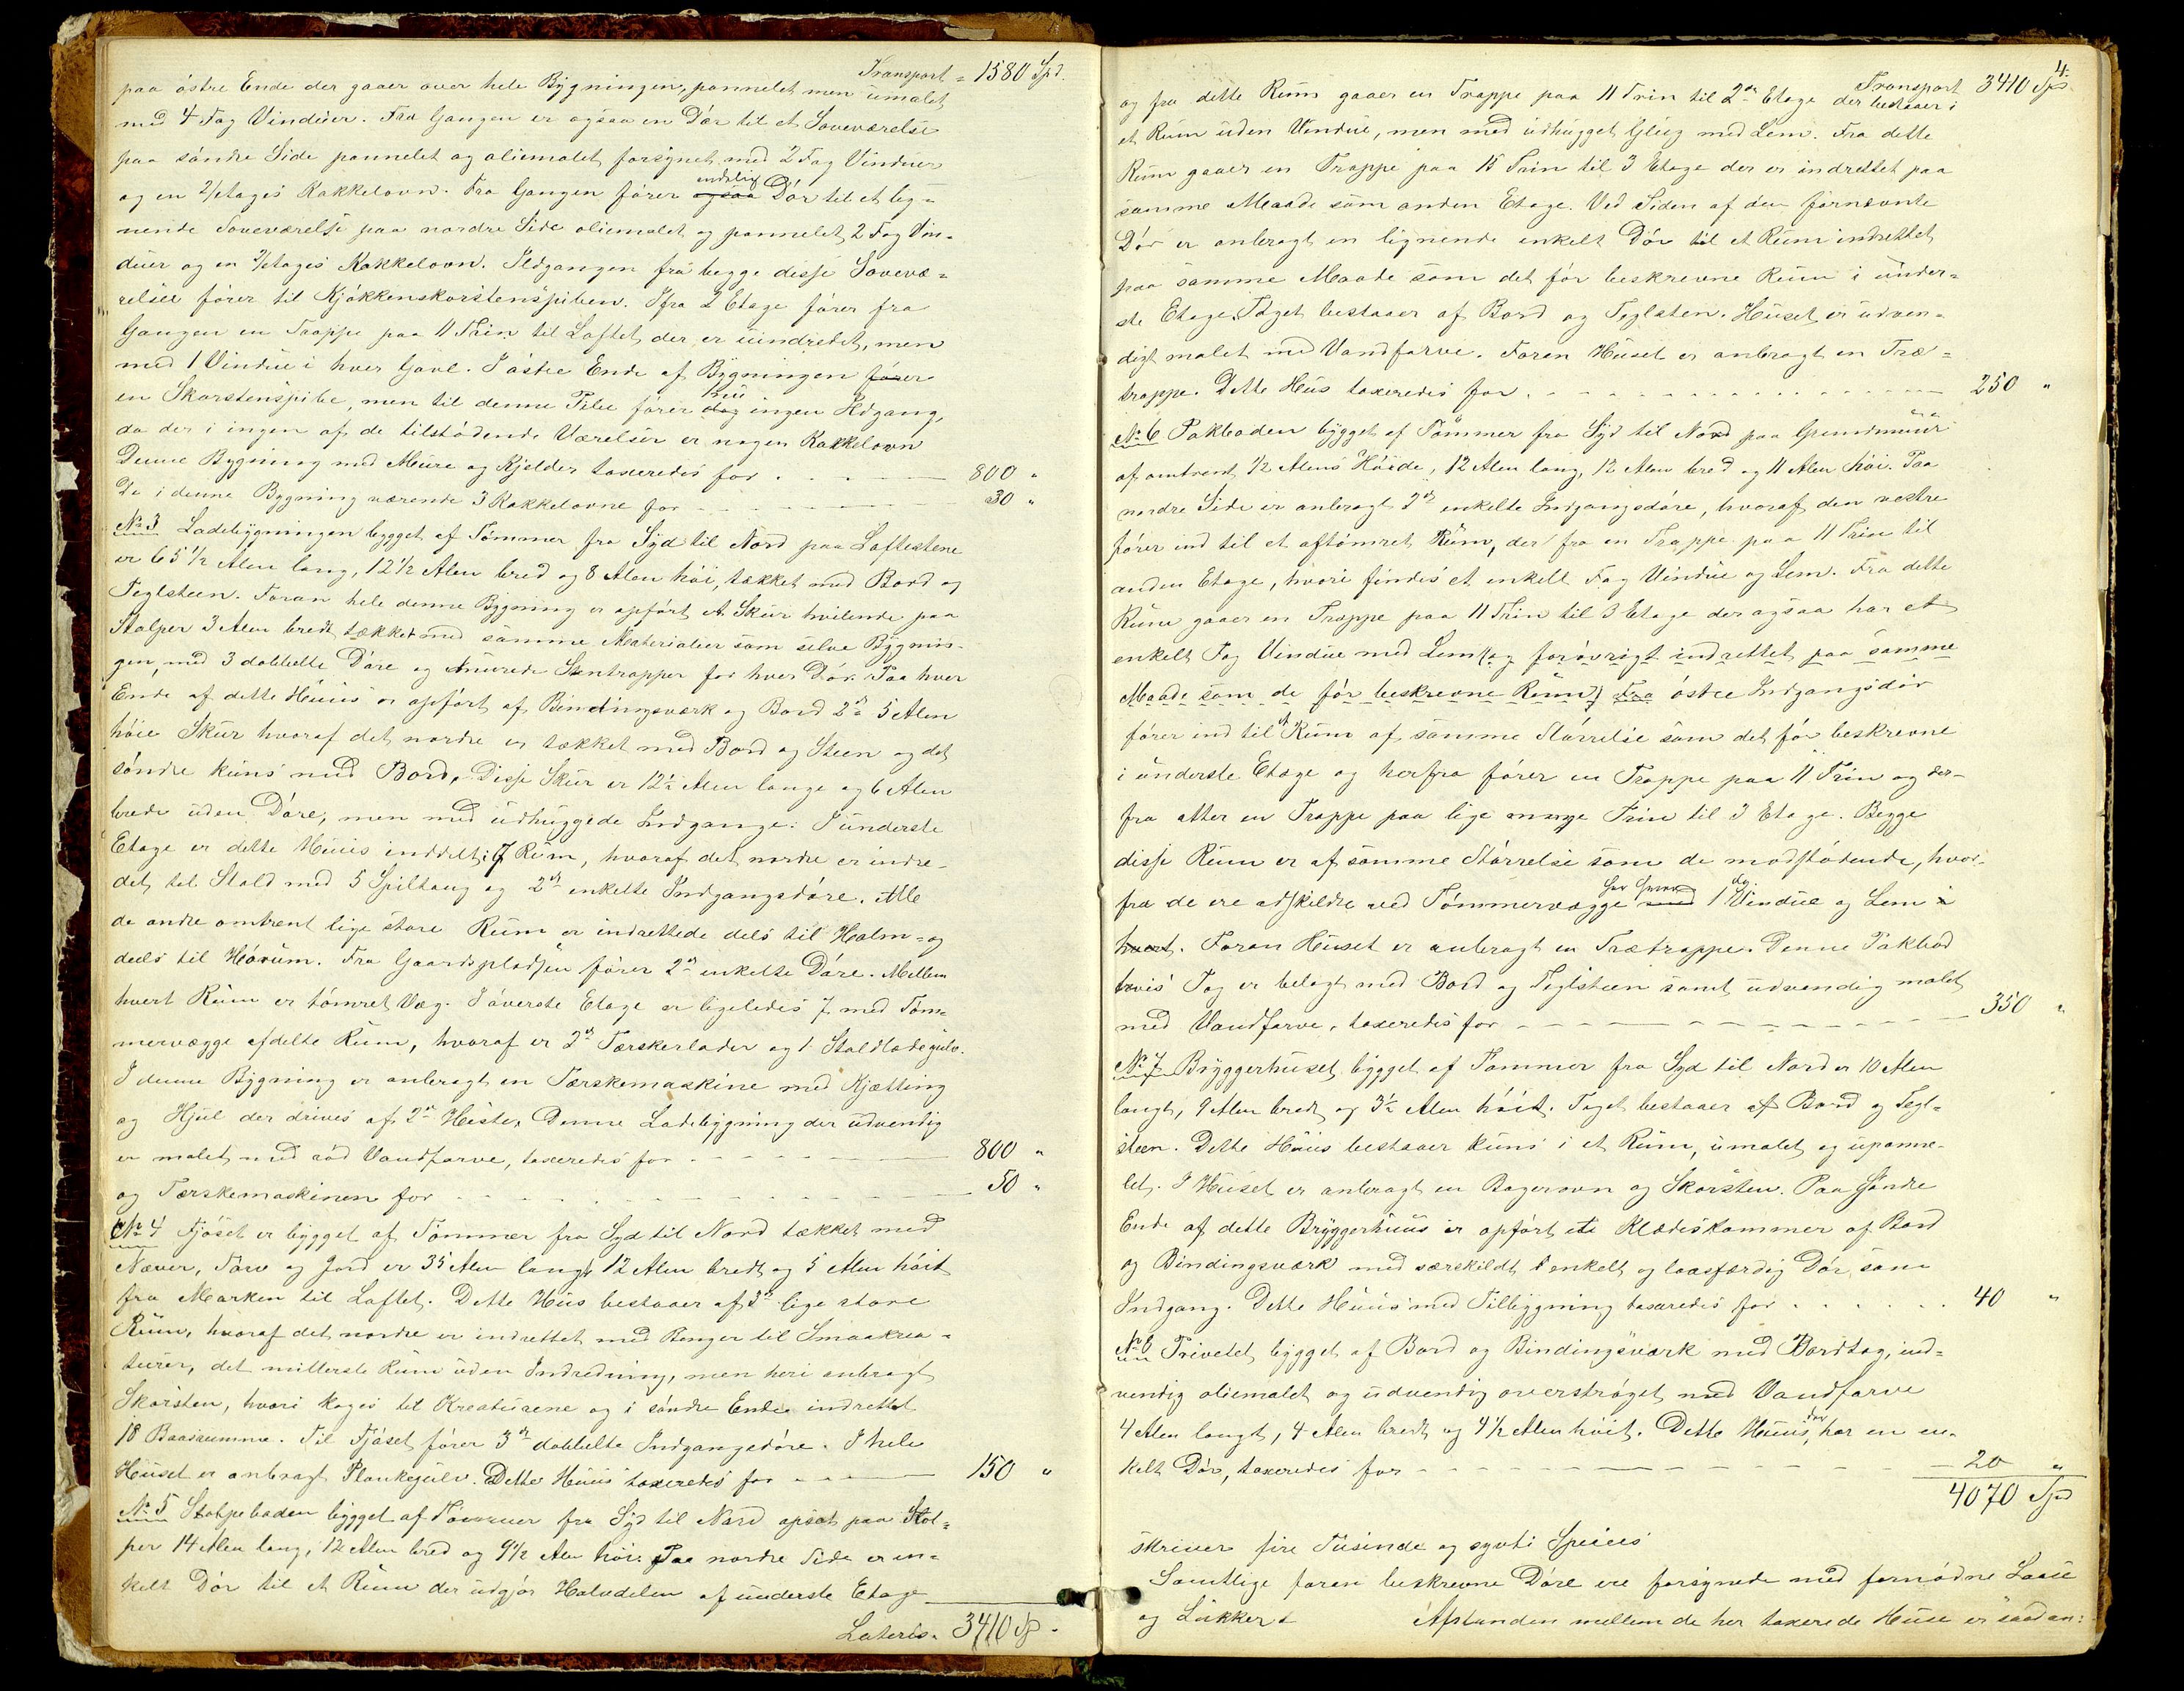 Transport = 1580 Spd.
paa östre Ende der gaaer over hele Bygningen, pannelet men umalet
med 4 Fag Vinduer. Fra Gangen er ogsaa en Dör til et Soveværelse
paa söndre Side pannelet og oliemalet forsÿnet med 2 Fag Vinduer
og en 2/etages Kakkelovn. Fra Gangen förer ogsaa endelig Dör til et lig-
nende Soveværelse paa nordre Side oliemalet og pannelet, 2 Fag Vin-
duer og en 2/etages Kakkelovn. Ildgangen fra begge disse Sovevæ-
relser förer til Kjökkenskorstenspiben. Ifra 2 Etage förer fra
Gangen en Trappe paa 11 Trin til Loftet, der er uindredet, men
med 1 Vindue i hver Gavl. I östre Ende af Bygningen förer
en Skorstenspibe, men til denne Pibe förer dog ingen Ildgang,
da der i ingen af de tilstödende Værelser er nogen Kakkelovn
Denne Bygning med Mure og Kjelder taxeredes for 800 "
De i denne Bygning værende 3 Kakkelovne for 30 "
No 3 Ladebygningen bygget af Tömmer fra Syd til Nord paa Loftestene
er 65 1/2 Alen lang, 12 1/2 Alen bred og 8 Alen höi, tækket med Bord og
Teglsteen. Foran hele denne Bygning er opfört et Skur hvilende paa
Stolper 3 Alen bredt tækket med samme Materialier som selve Bygnin-
gen, med 3 dobbelte Döre og murede Stentrapper for hver Dör. Paa hver
Ende af dette Huus er opfört af Bindingsværk og Bord 2de 5 Alen
höie Skur hvoraf det nordre er tækket med Bord og Steen og det
söndre kuns med Bord. Disse Skur er 12 1/2 Alen lange og 6 Alen
brede uden Döre, men med udhuggede Indgange. I underste
Etage er dette Huus inddelt i 7 Rum, hvoraf det nordre er indre-
det til Stald med 5 Spiltaug og 2de enkelte Indgangsdöre. Alle
de andre omtrent lige store Rum er indrettede dels til Halm- og
deels til Hörum. Fra Gaardspladsen förer 2de enkelte Döre. Mellem
hvert Rum er tömret Væg. I överste Etage er ligeledes 7 med Töm-
mervægge afdelte Rum, hvoraf er 2de Tærskerlader og 1 Staldladegulv.
I denne Bygning er anbragt en Tærskemaskine med Kjætting
og Hjul der drives af 2de Heste. Denne Ladebygning der udvendig
er malet med röd Vandfarve, taxeredes for 800 "
og Tærskemaskinen for 50 "
No 4 Fjöset er bygget af Tömmer fra Syd til Nord tækket med
Næver, Törv og Jord er 35 Alen langt, 12 Alen bredt og 5 Alen höit
fra Marken til Loftet. Dette Huus bestaaer af 3de lige store
Rum, hvoraf det nordre er indrettet med Benger til Smaakrea-
turer, det mitterste Rum uden Indredning, men heri anbragt
Skorsten, hvori koges til Kreaturene og i söndre Ende indrettet
18 Baasrumme. Til Fjöset förer 3de dobbelte Indgangsdöre. I hele
Huset er anbragt Plankegulv. Dette Huus taxeredes for 150 "
No 5 Stolpeboden bygget af Tömmer fra Syd til Nord opsat paa Stol-
per 14 Alen lang, 12 Alen bred og 9 1/2 Alen höi. Paa nordre Side er en-
kelt Dör til et Rum der udgjör Halvdelen af underste Etage
Lateris. 3410 Sp.
4.
Transport 3410 Spd.
og fra dette Rum gaaer en Trappe paa 11 Trin til 2den Etage der bestaaer i
et Rum uden Vindue, men med udhugget Glug med Lem. Fra dette
Rum gaaer en Trappe paa 15 Trin til 3 Etage der er indrettet paa
samme Maade som anden Etage. Ved Siden af den förnævnte
Dör er anbragt en lignende enkelt Dör til et Rum indrettet
paa samme Maade som det för beskrevne Rum i under-
ste Etage. Taget bestaaer af Bord og Teglsten. Huset er udven-
digt malet med Vandfarve. Foran Huset er anbragt en Træ-
trappe. Dette Hus taxeredes for 250 "
No 6 Pakboden bygget af Tömmer fra Syd til Nord paa Grundmuur
af omtrent 1/2 Alens Höide, 12 Alen lang, 12 Alen bred og 11 Alen höi. Paa
nordre Side er anbragt 2de enkelte Indgangsdöre, hvoraf den vestre
förer ind til et aftömret Rum, der fra en Trappe paa 11 Trin til
anden Etage, hvori findes et enkelt Fag Vindue og Lem. Fra dette
Rum gaaer en Trappe paa 11 Trin til 3 Etage der ogsaa har et
enkelt Fag Vindue med Lem (og forövrigt indrettet paa samme
Maade som de för beskrevne Rum) Fra östre Indgangsdör
förer ind til et Rum af samme Störrelse som det för beskrevne
i underste Etage og herfra förer en Trappe paa 11 Trin og der-
fra atter en Trappe paa lige mange Trin til 3 Etage. Begge
disse Rum er af samme Störrelse som de modstödende, hvor-
fra de ere adskildte ved Tömmervægge med 1 Vindue og Lem i
hvert. Foran Huset er anbragt en Trætrappe. Denne Pakbod
hvis Tag er belagt med Bord og Teglsteen samt udvendig malet
med Vandfarve, taxeredes for 350 "
No 7 Bryggerhuset bygget af Tömmer fra Syd til Nord er 10 Alen
langt, 9 Alen bredt og 3 1/2 Alen höit. Taget bestaaer af Bord og Tegl-
steen. Dette Huus bestaaer kuns i et Rum, umalet og upanne-
let. I Huset er anbragt en Bagerovn og Skorsten. Paa Söndre
Ende af dette Bryggerhuus er opfört et Klædeskammer af Bord
og Bindingsværk med særskildt enkelt og laasfærdig Dör som
Indgang. Dette Huus med Tilbygning taxeredes for 40 "
No 8 Privetet bygget af Bord og Bindingsværk med Bordtag, ind-
vendig oliemalet og udvendig overströget med Vandfarve
4 Alen langt, 4 Alen bredt og 4 1/2 Alen höit. Dette Huus, der har en en-
kelt Dör, taxeredes for 20 "
4070 Spd
skriver fire Tusinde og sÿvti Species
Samtlige foran beskrevne Döre ere forsynede med fornödne Laase
og Lukker. Afstanden mellem de her taxerede Huse er saadan: